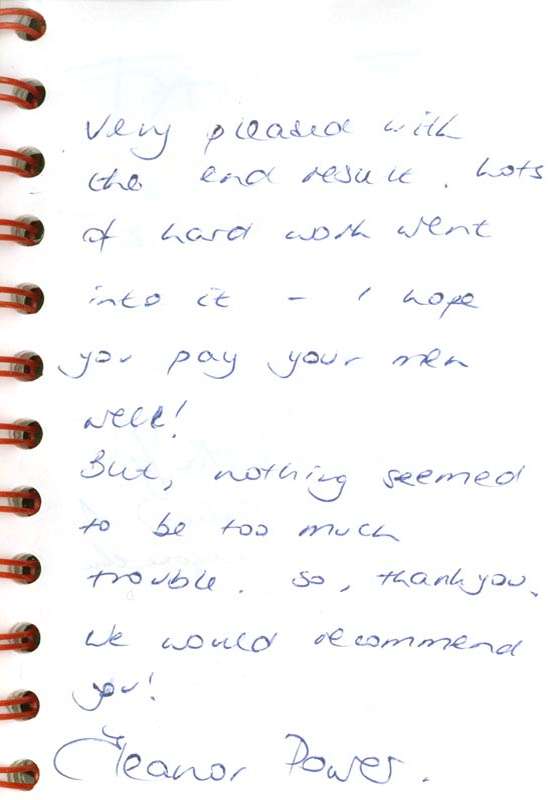 Very pleased with
the end result. Lots
of hard work went
into it - I hope
you pay your men
well!
But, nothing seemed
to be too much
trouble. So, thankyou.
We would recommend
you!
Eleanor Power.